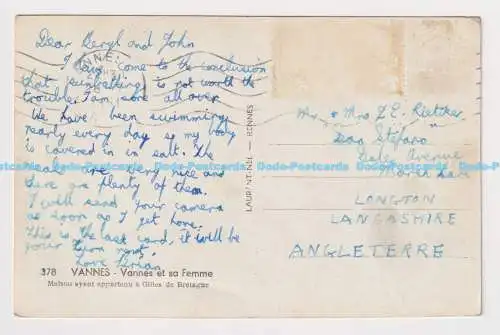 Dear Beryl and John
I have come to the conclusion
that sunbathing is not worth the
trouble. I am sore all over
We have been swimming
nearly every day so my body
is covered in salt. The
are very nice and
there are plenty of them.
I will send your camera
as soon as I get home.
This is the last card, it will be
your turn next.
Love Brian
VANNES
LAURENT-NEL — RENNES
Mr & Mrs
Avenue
LONGTON
LANCASHIRE
ANGLETERRE
378 VANNES - Vannes et sa Femme
Maison ayant appartenu à Gilles de Bretagne
Dodo-Postcards Dodo-Postcards Dodo-Postcards Dodo-Postcards